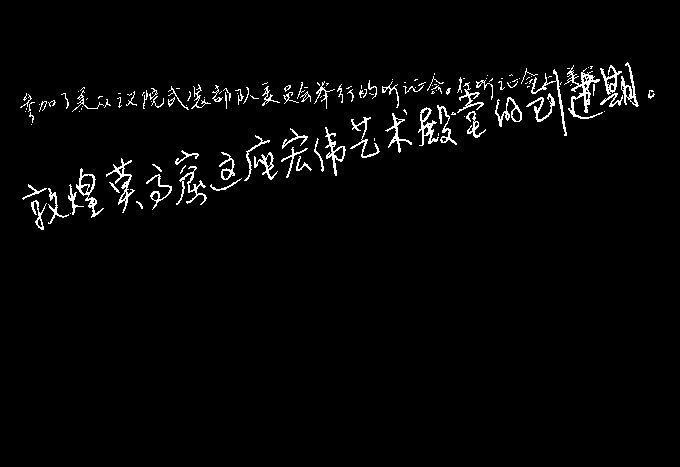 参加了美众议院武装部队委员会举行的听证会。在听证会上,美
敦煌莫高窟这座宏伟艺术殿堂的创造期。